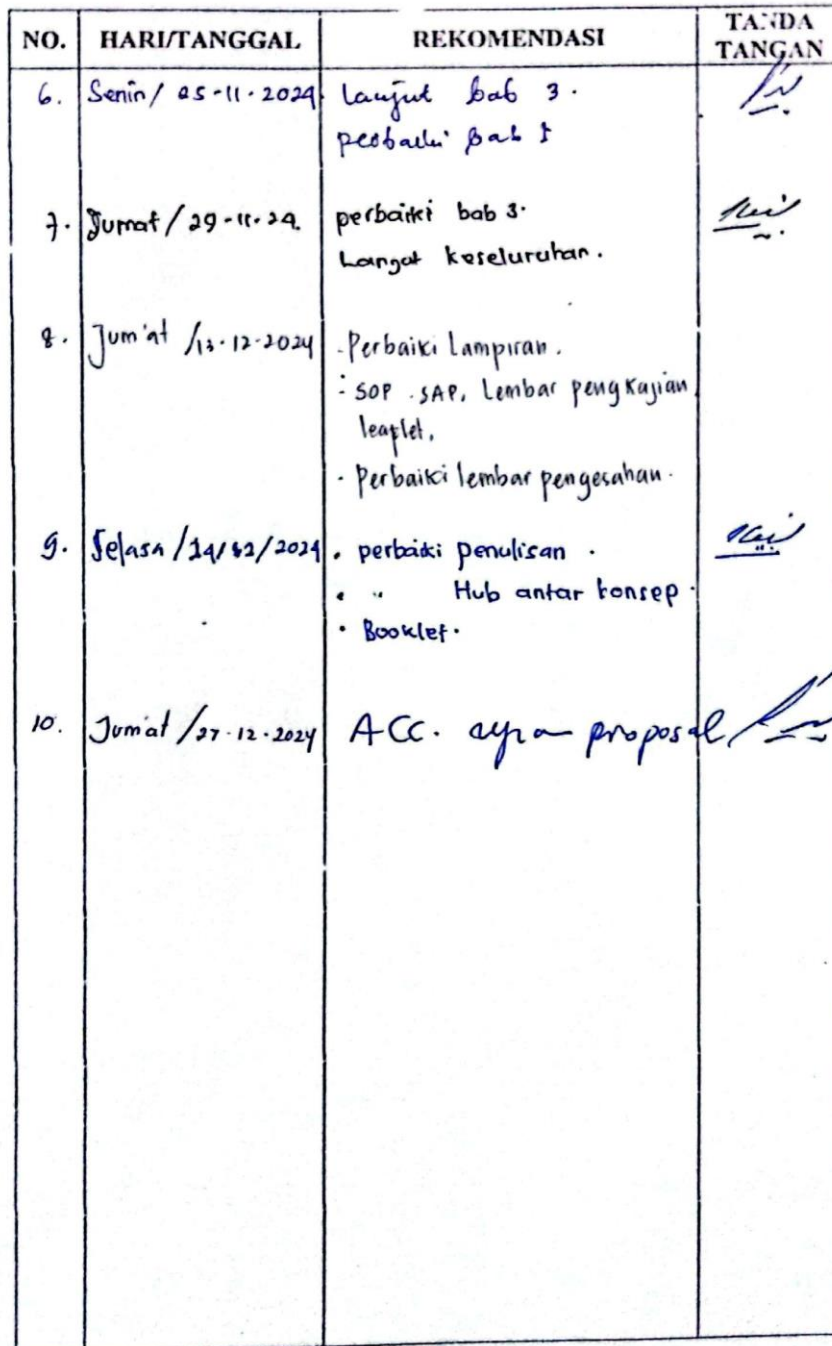 NO. HARI/TANGGAL REKOMENDASI TANDA TANGAN
6. Senin / 25-11-2024 Lanjut bab 3.
perbaiki bab
7. Jumat / 29-11-24. perbaiki bab 3.
keseluruhan.
8. Jum'at / 13-12-2024 - Perbaiki Lampiran.
- SOP. SAP. Lembar pengkajian
leaflet.
- Perbaiki lembar pengesahan.
9. Selasa / 24/12/2024 • perbaiki penulisan.
• " Hub antar konsep.
• Booklet.
10. Jum'at / 27-12-2024 ACC. proposal